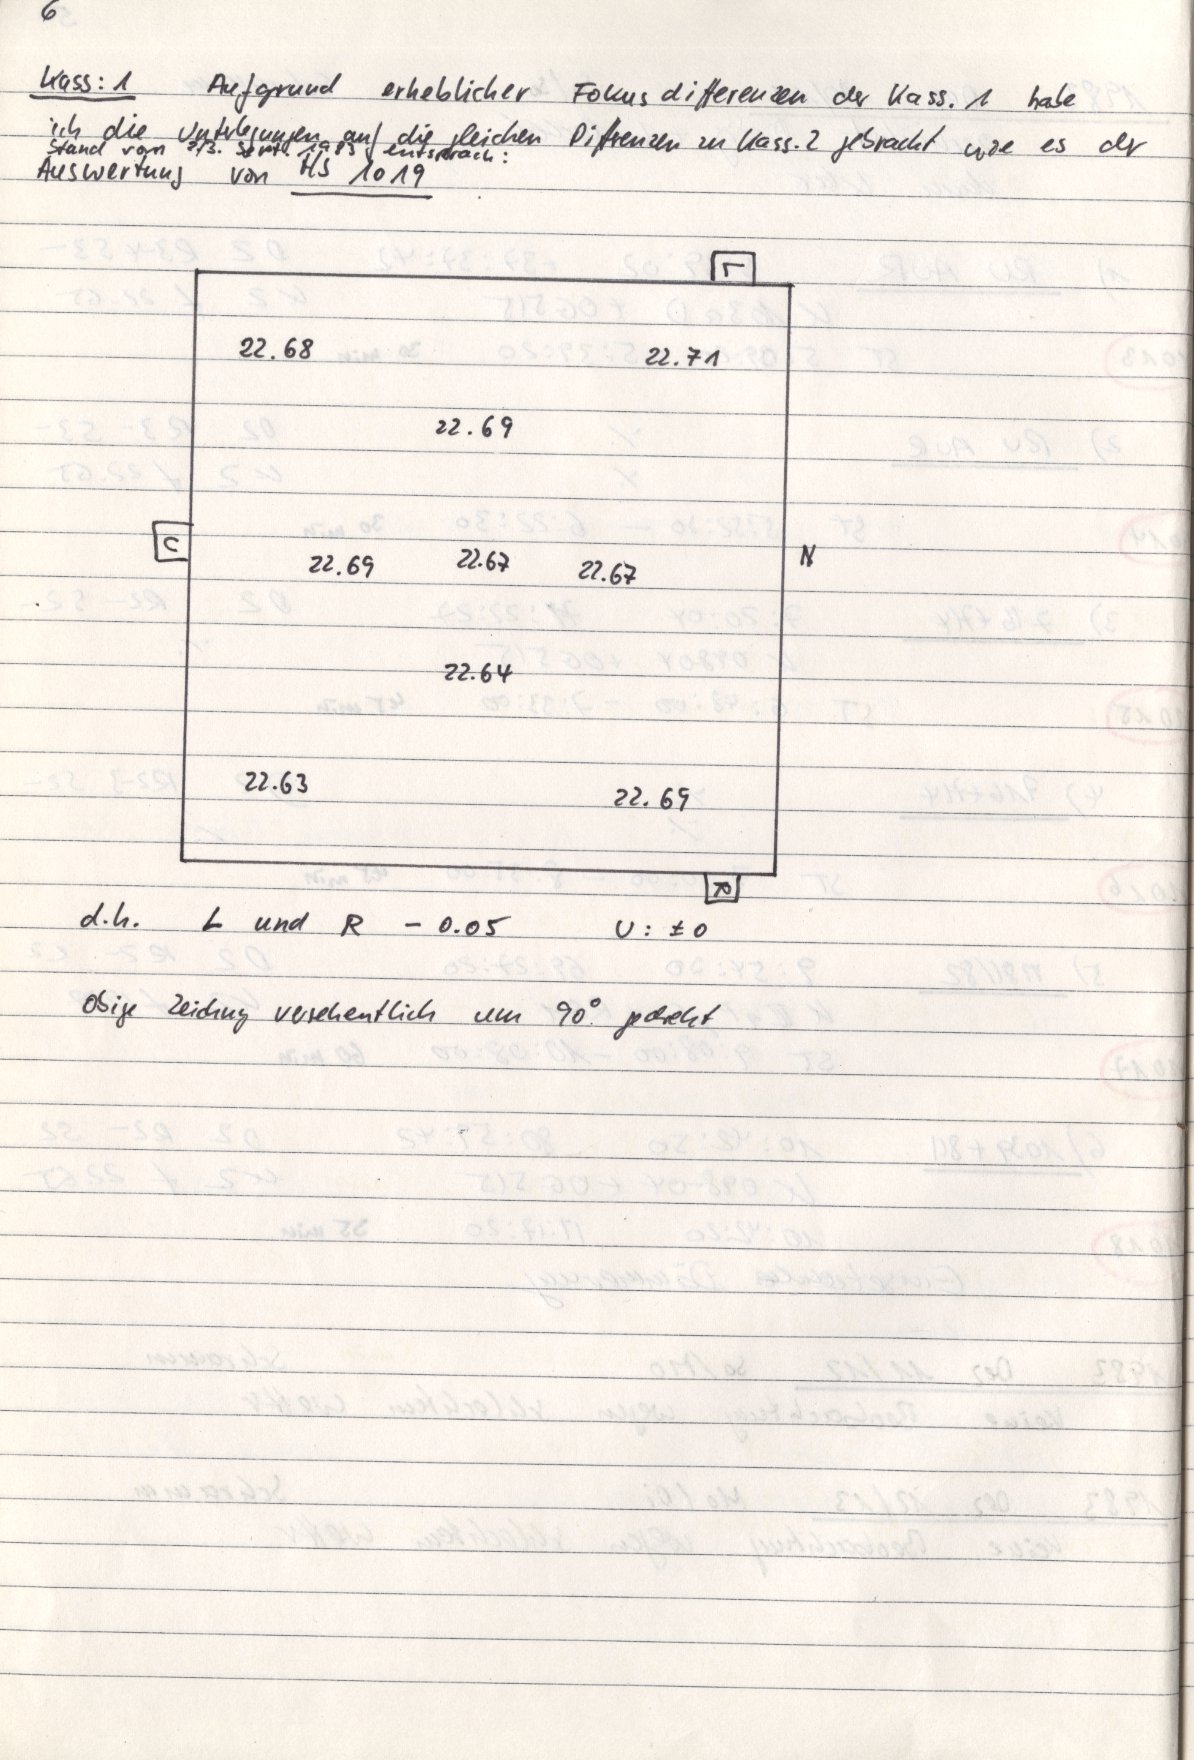 6
Kass: 1 Aufgrund erheblicher Fokusdifferenzen der Kass. 1 habe
ich die Unterlegungen auf die gleichen Differenzen zu Kass. 2 gebracht wie es der
Stand vom 2/3. Sept. 1983 entsprach:
Auswertung von HS 1019
L
22.68 22.71
22.69
U
N
22.69 22.67 22.67
22.64
22.63 22.69
R
d.h. L und R - 0.05 U: ± 0
Obige Zeichnung versehentlich um 90° gedreht